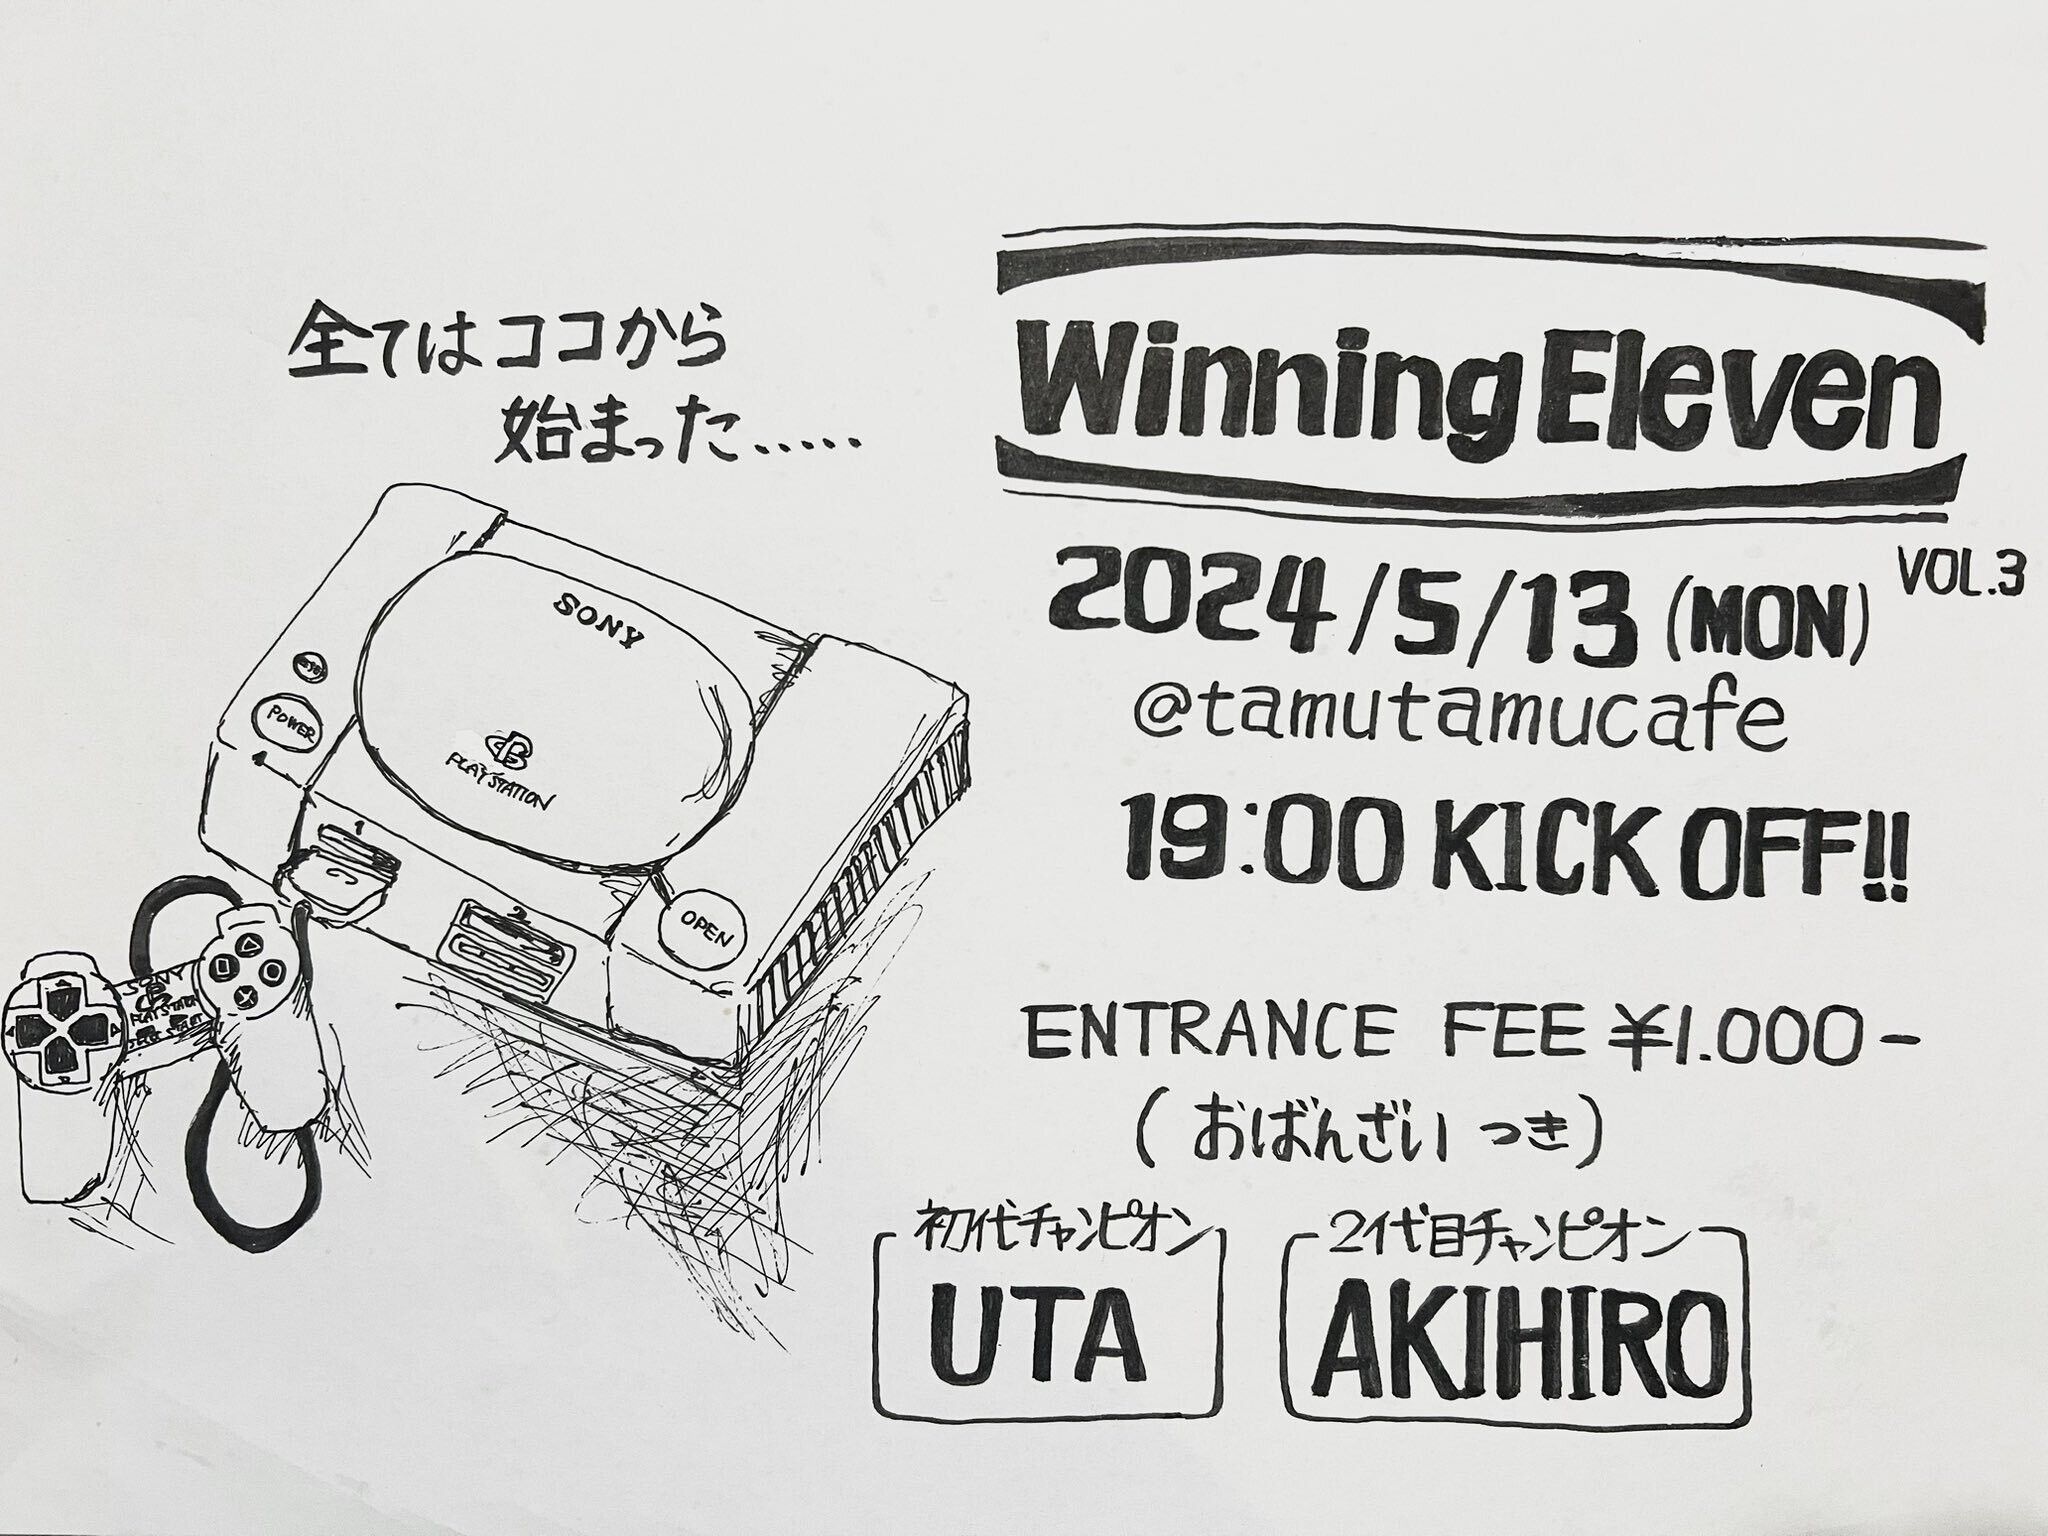 全てはココから
始まった.....
SONY
POWER
PLAYSTATION
1
2
OPEN
SONY
PLAYSTATION
Winning Eleven
VOL.3
2024/5/13 (MON)
@tamutamucafe
19:00 KICK OFF!!
ENTRANCE FEE ¥1.000-
(おばんざいつき)
初代チャンピオン
UTA
2代目チャンピオン
AKIHIRO